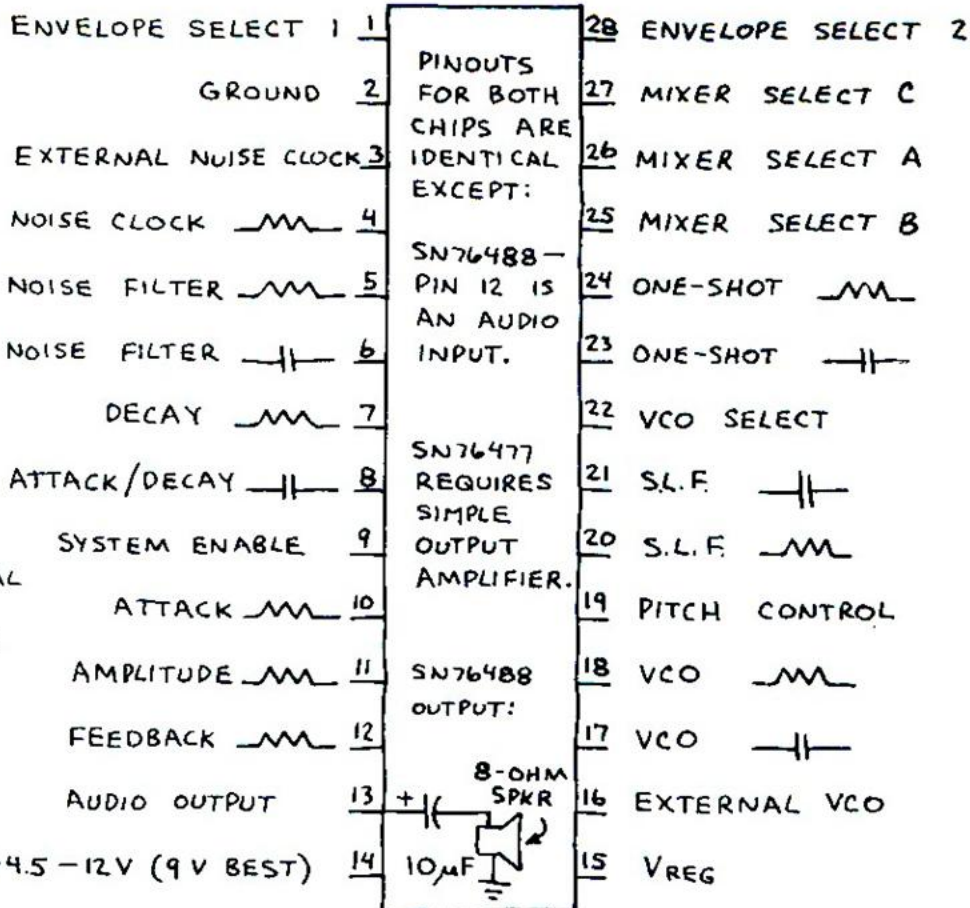 ENVELOPE SELECT 1 1
GROUND 2
EXTERNAL NUISE CLOCK 3
NOISE CLOCK 4
NOISE FILTER 5
NOISE FILTER 6
DECAY 7
ATTACK/DECAY 8
SYSTEM ENABLE 9
ATTACK 10
AMPLITUDE 11
FEEDBACK 12
AUDIO OUTPUT 13
4.5-12V (9 V BEST) 14
PINOUTS
FOR BOTH
CHIPS ARE
IDENTICAL
EXCEPT:
SN76488-
PIN 12 IS
AN AUDIO
INPUT.
SN76477
REQUIRES
SIMPLE
OUTPUT
AMPLIFIER.
SN76488
OUTPUT:
8-OHM
SPKR
+
10µF
28 ENVELOPE SELECT 2
27 MIXER SELECT C
26 MIXER SELECT A
25 MIXER SELECT B
24 ONE-SHOT
23 ONE-SHOT
22 VCO SELECT
21 S.L.F.
20 S.L.F.
19 PITCH CONTROL
18 VCO
17 VCO
16 EXTERNAL VCO
15 VREG